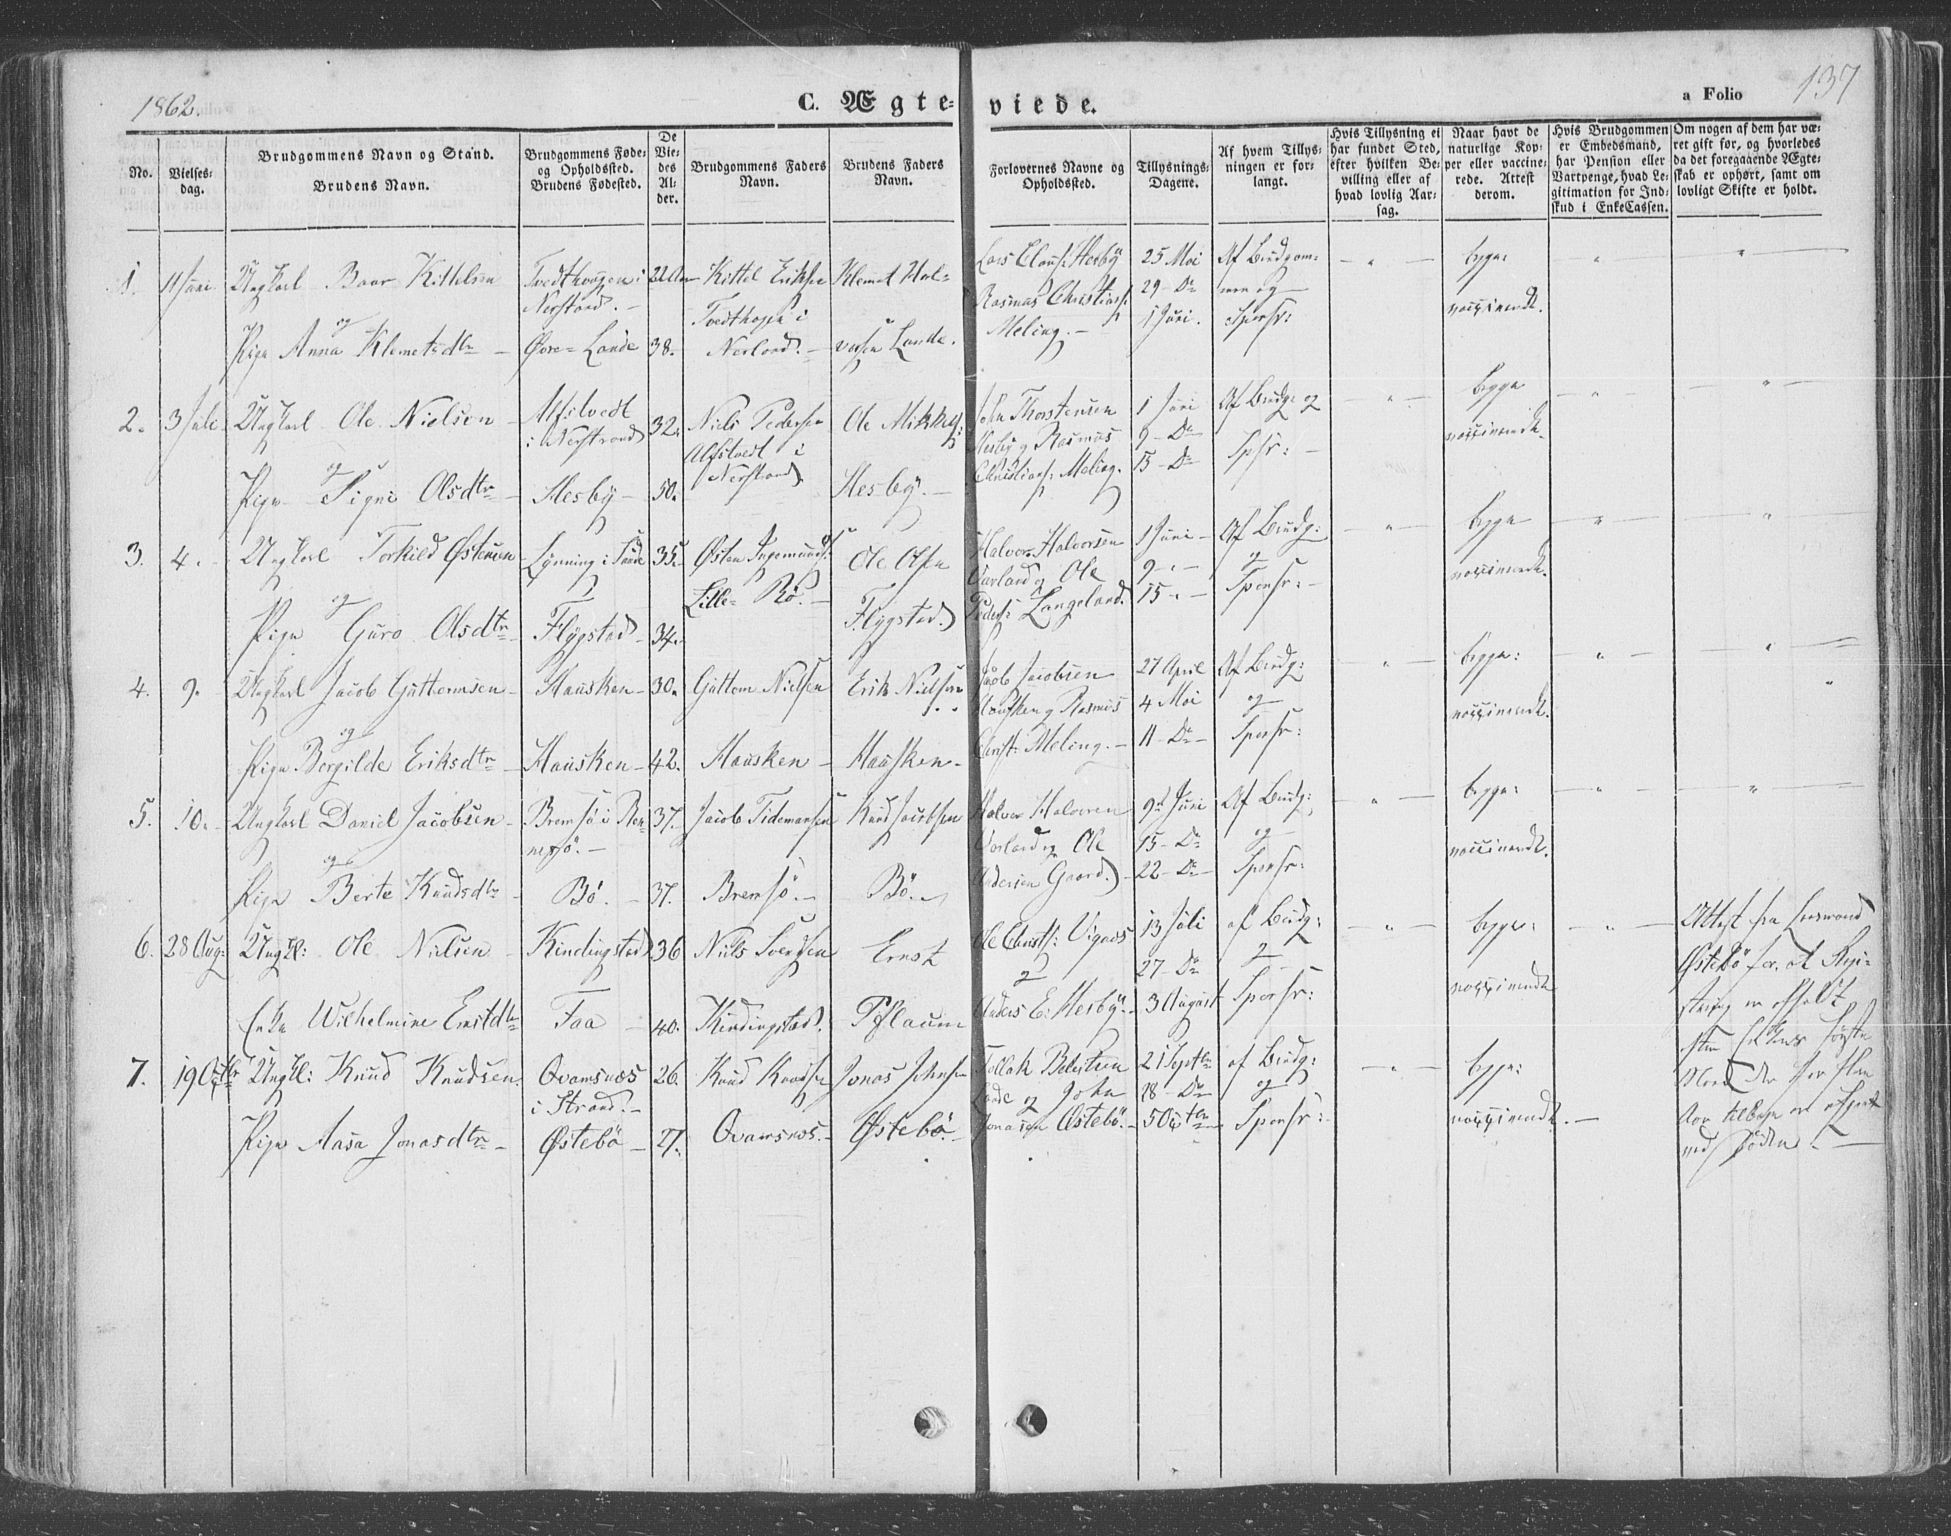 1862.
C. Ægte-
viede.
a Folio
137
No.
Vielses-
dag.
Brudgommens Navn og Stand.
Brudens Navn.
Brudgommens Føde-
og Opholdssted.
Brudens Fødested.
De
Vie-
des
Al-
der.
Brudgommens Faders
Navn.
Brudens Faders
Navn.
Forlovernes Navne og
Opholdssted.
Tillysnings-
Dagene.
Af hvem Tillys-
ningen er for-
langt.
Hvis Tillysning ei
har fundet Sted,
efter hvilken Be-
villing eller af
hvad lovlig Aar-
sag.
Naar havt de
naturlige Kop-
per eller vaccine-
rede. Attest
derom.
Hvis Brudgommen
er Embedsmand,
har Pension eller
Vartpenge, hvad Le-
gitimation for Ind-
skud i EnkeCassen.
Om nogen af dem har væ-
ret gift før, og hvorledes
da det foregaaende Ægte-
skab er ophørt, samt om
lovligt Skifte er holdt.
1. 11 Juni Ungkarl Baar Kittelsen
og
Pige Anna Klemetsdtr
Tvedthougen i
Nerstrand.
Øvre-Lande
38.
Kittel Eriksen
Tvedthogen i
Klemet Hal-
vorsen Lande.
Lars Claus: Hesby
Rasmus Christians:
Meling.
25 Mai
29 - Do
1 Juni.
Af Brudgom-
men og
Sponsr:
begge
vaccinerede.
2. 3 Juli Ungkarl Ole Nielsen
og
Pige Signi Olsdtr
i Nerstrand
Hesby
32.
50.
Niels Pedersen
i
Nerstrand
Ole Mikkels:
Hesby.
John Thorstensen
Hesby og Rasmus
Christians: Meling.
1 Juni
9 - Do
15 - Do
Af Brudg: og
Spsr:
begge
vaccinerede.
3. 4. Ungkarl Torkild Østensen
og
Pige Guro Olsdtr
Flygstad
35.
34.
Østen Ingemunds:
Lille-Bø.
Ole Olsen
Flygstad
Halvor Halvorsen
Varland og Ole
Peders: Langeland.
1 Juni
9 - " -
15 - " -
Af Brudg:
og
Sponsr:
begge
vaccinerede.
4. 9. Ungkarl Jacob Guttormsen
og
Pige Bergilde Eriksdtr
Hausken
Hausken
30.
42.
Guttorm Nielsen
Hausken
Erik Nielsen
Hausken
Jacob Jacobsen
Hausken og Rasmus
Christ: Meling.
27 April
4 Mai
11 - Do
Af Brudg:
og
Sponsr:
begge:
vaccinerede.
5. 10. Ungkarl Daniel Jacobsen
og
Pige Berte Knudsdtr
Bremsø i Ren-
nesø.
Bø.
37.
37.
Jacob Tidemansen
Bremsø
Knud Jacobsen
Bø.
Halvor Halvorsen
Varland og Ole
Andersen Gaard.
9d Juni
15 - Do
22 - Do
Af Brudg:
og
Sponsr:
begge:
vaccinerede.
6. 28 Aug: Ungkl: Ole Nielsen
Enke Wilhelmine Ernstdtr
Kindingstad
Faa
36
40.
Niels Svendsen
Kindingstad.
Ernst
Pflaum
Ole Christs: Vignes
og
Anders E: Hesby.
13 Juli
27 - Do
3 August
af Brudg:
og
Sponsr:
begge:
vaccinerede
Attest fra Lensmand
Østebø for at Regi-
7. 19 Octbr Ungkl: Knud Knudsen
Pige Aasa Jonasdtr
Qvamsnæs
i Strand.
Østebø
26.
27.
Knud Knudsen
Qvamsnæs.
Jonas Johnsen
Østebø.
Tollak
Lande og John
Jonassen Østebø.
21 Septbr
28 - Do
5 Octbr
af Brudg:
og
Sponsr:
begge:
vaccinerede.